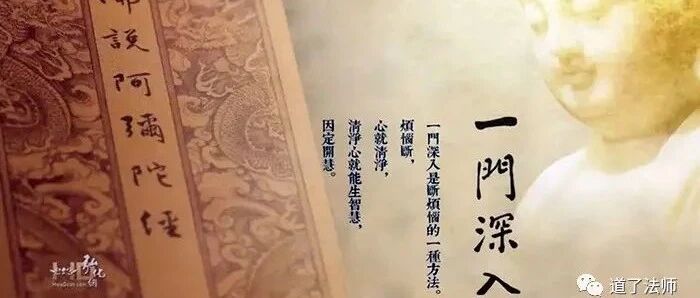 一門深入
一門深入是斷煩惱的一種方法。
煩惱斷，
心就清淨，
清淨心就能生智慧，
因定開慧。
佛說阿彌陀經
HwaDzan.com
道了法师